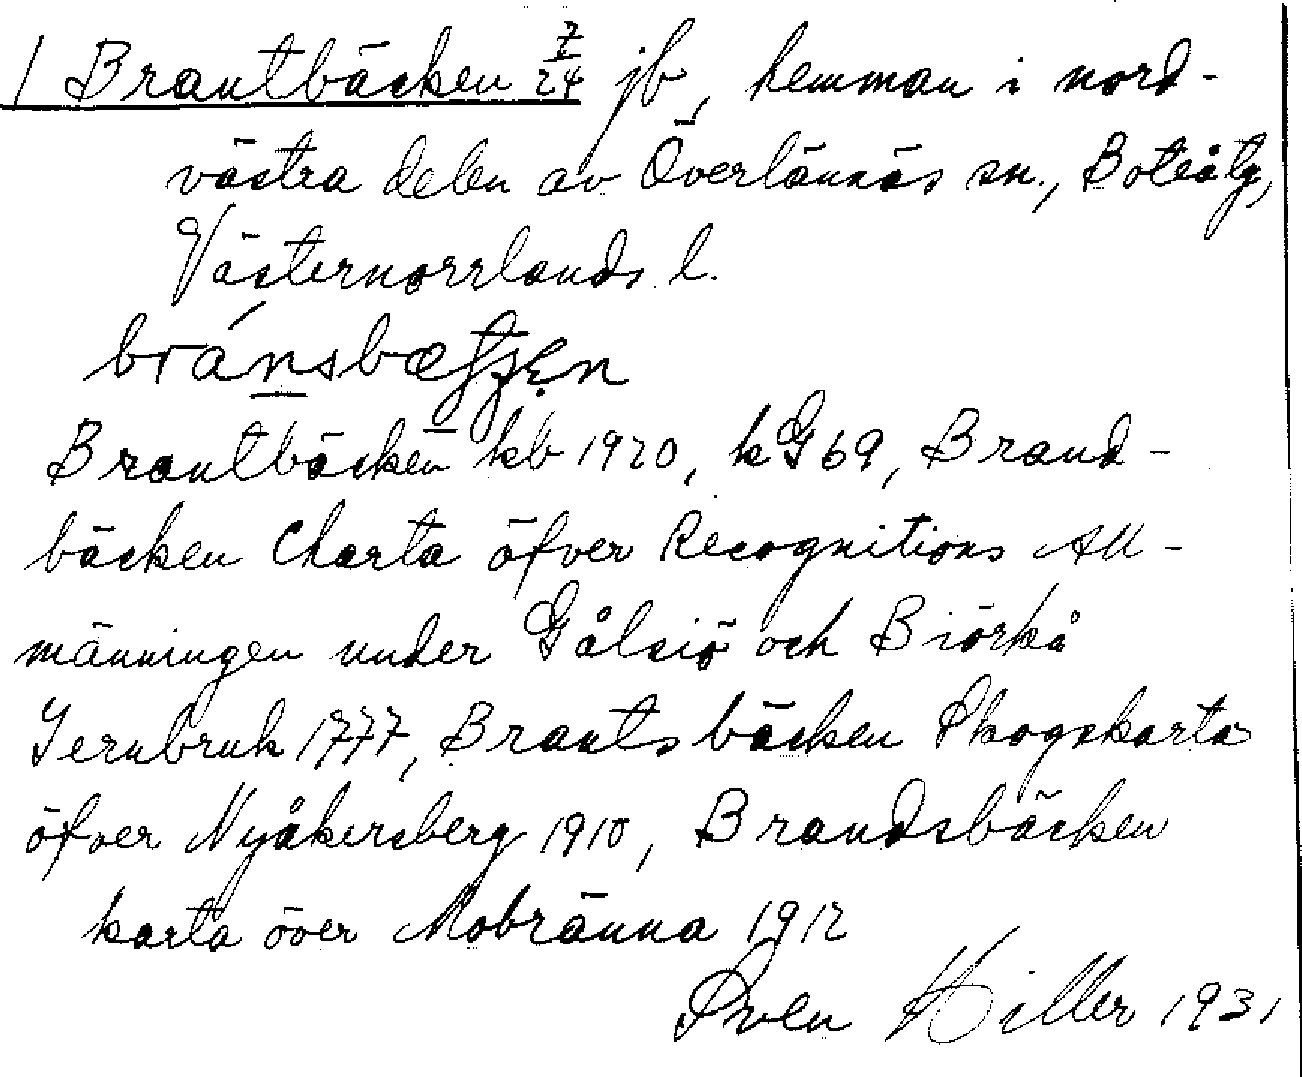 1 Brantbäcken 7/24 jb, hemman i nord-
västra delen av Överlännäs sn., Boteåtg,
Västernorrlands l.
Brantbäcken kb 1920, kG 69, Brand-
bäcken Charta öfver Recognitions All-
männingen under Gålsiö och Biörkå
Jernbruk 1777, Brantsbäcken Skogskarta
öfver Nyåkersberg 1910, Brandsbäcken
karta över Mobränna 1912
Sven Hiller 1931